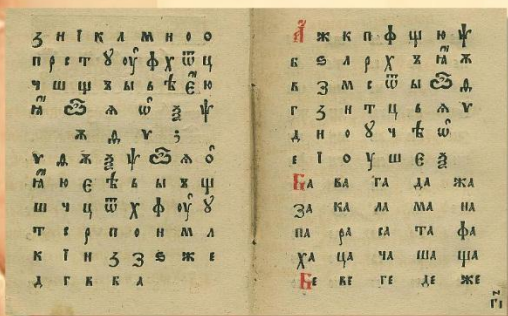 ꙁ и і к л м н о ѻ
п р с т ꙋ оу ф х ѿ ц
ч ш щ ъ ы ь ѣ є ю
ꙗ ѽ ѧ ѡ ѯ ѱ
ѫ ѳ ѵ ;
ѵ ѳ ѫ ѯ ѱ ѽ ѧ ѡ
ꙗ ю є ѣ ь ы ъ щ
ш ч ц ѿ х ф оу ꙋ
т с р п о н м л
к і и ꙁ з ѕ ж е
д г в б а
а ж к п ф щ ю ѱ
б ѕ л р х ъ ꙗ ѫ
в з м с ѿ ы ѽ ѳ
г ꙁ н т ц ь ѧ ѵ
д и о ꙋ ч ѣ ѡ
е і о у ш є ѯ
Ба ва га да жа
за ка ла ма на
па ра са та фа
ха ца ча ша ща
Бе ве ге де же
гі